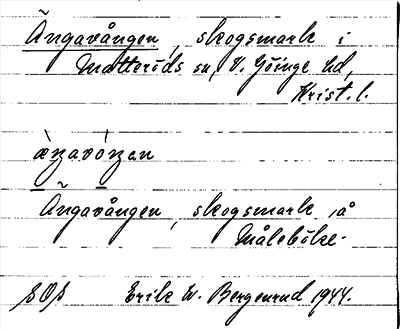 Ängavången, skogsmark i
Matteröds sn, V. Göinge hd,
Krist. l.
Ängavången, skogsmark å
Måleböke.
Erik W. Bergenrud 1944.